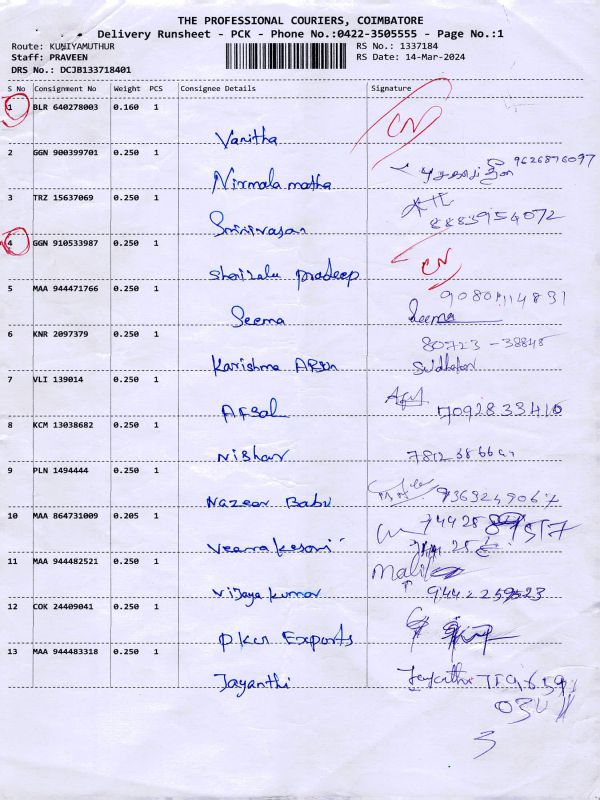 THE PROFESSIONAL COURIERS, COIMBATORE
Delivery Runsheet - PCK - Phone No.:0422-3505555 - Page No.:1
Route: KUNIYAMUTHUR RS No.: 1337184
Staff: PRAVEEN RS Date: 14-Mar-2024
DRS No.: DCJB133718401
S No Consignment No Weight PCS Consignee Details Signature
1 BLR 640278003 0.160 1
Vanitha CN
2 GGN 900399701 0.250 1
Nirmala matha 9626876097
3 TRZ 15637069 0.250 1
Srinivasan 8883954072
4 GGN 910533987 0.250 1
pradeep CN
5 MAA 944471766 0.250 1
Seema Seema
6 KNR 2097379 0.250 1 80723-38848
Karishma
7 VLI 139014 0.250 1
Afsal 7092833410
8 KCM 13038682 0.250 1
Nishar
9 PLN 1494444 0.250 1
Nazeer Babu
10 MAA 864731009 0.205 1
Veera kesari
11 MAA 944482521 0.250 1
Vijaya kumar
12 COK 24409041 0.250 1
PKN Exports
13 MAA 944483318 0.250 1
Jayanthi Jayanthi
3